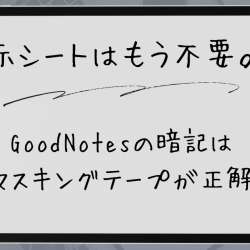 示シートはもう不要
GoodNotesの暗記は
マスキングテープが正解